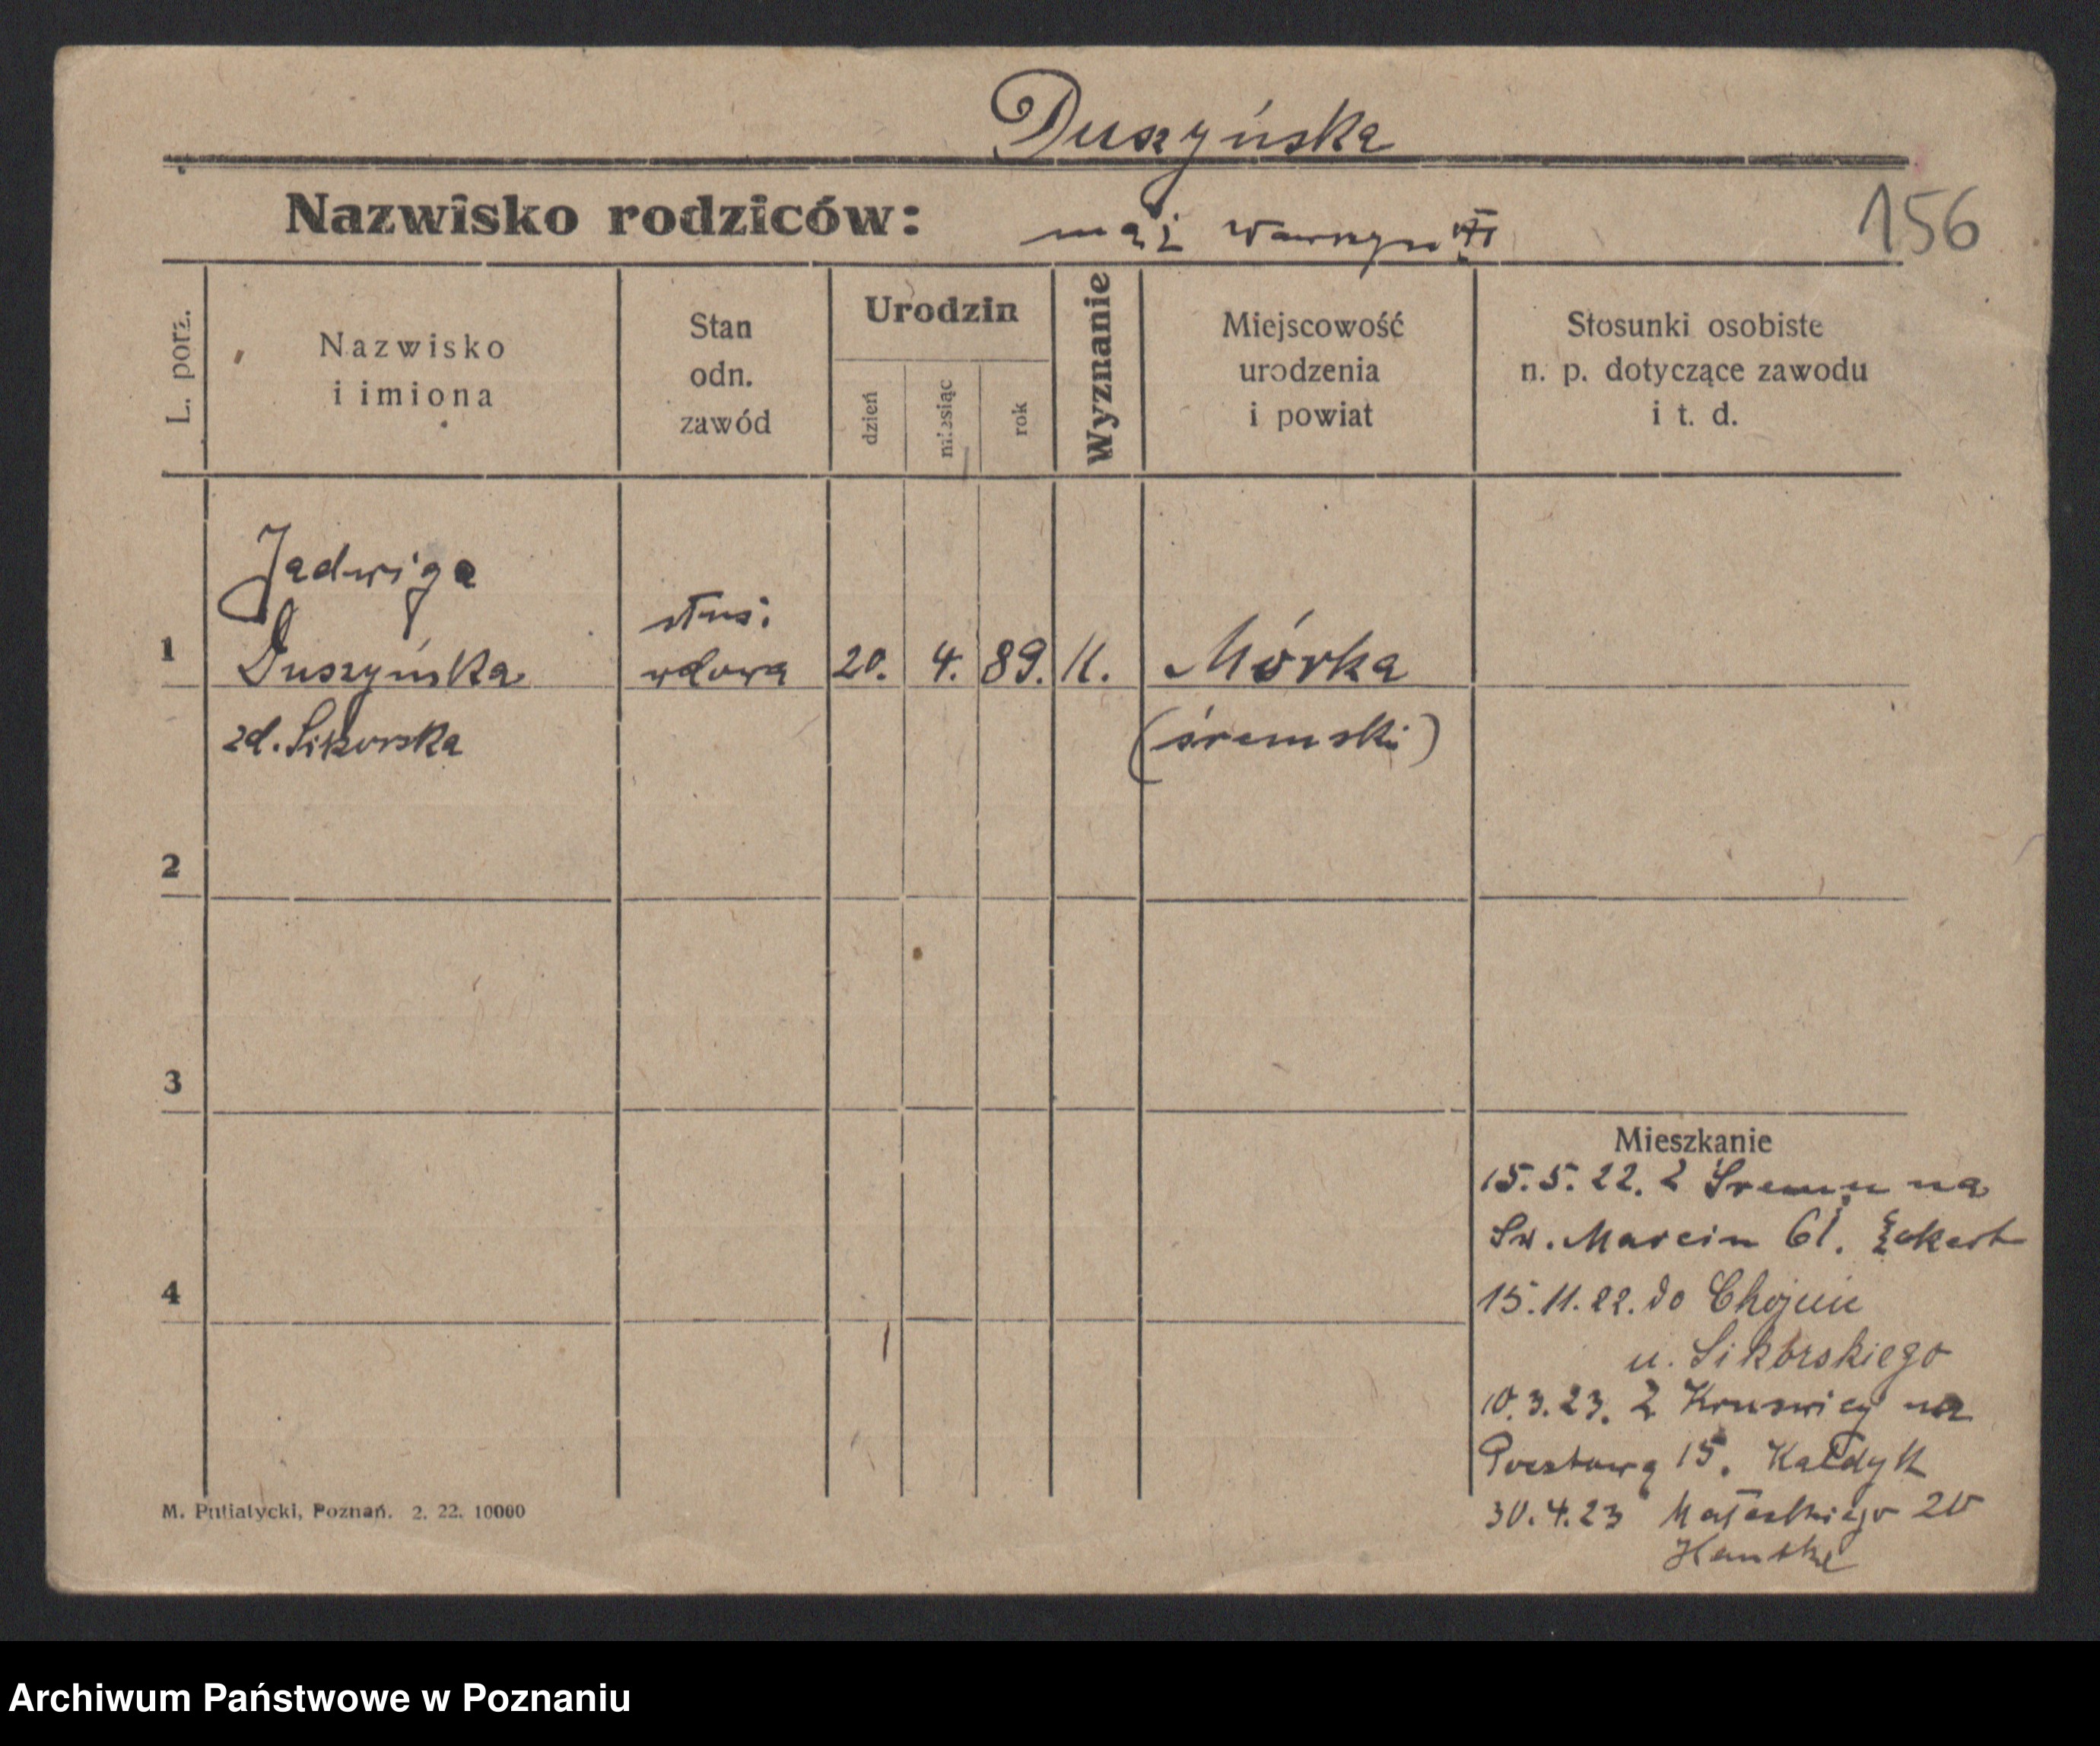 Duszyńska
Nazwisko rodziców: mąż Wawrzyn
156
L. porz.
Nazwisko
i imiona
Stan
odn.
zawód
Urodzin
dzień
miesiąc
rok
Wyznanie
Miejscowość
urodzenia
i powiat
Stosunki osobiste
n. p. dotyczące zawodu
i t. d.
1
Jadwiga
Duszyńska
zd. Sikorska
służ.
wdowa
20. 4. 89. K.
Mórka
(śremski)
2
3
4
Mieszkanie
15.5.22. Z Śremu na
Św. Marcin 61. Eckert
15.11.22. do Chojnic
u. Sikorskiego
10.3.23. Z Kruswicy na
Pocztową 15. Kałdyk
30.4.23 Matestkiego 20
M. Putiatycki, Poznań. 2. 22. 10000
Archiwum Państwowe w Poznaniu